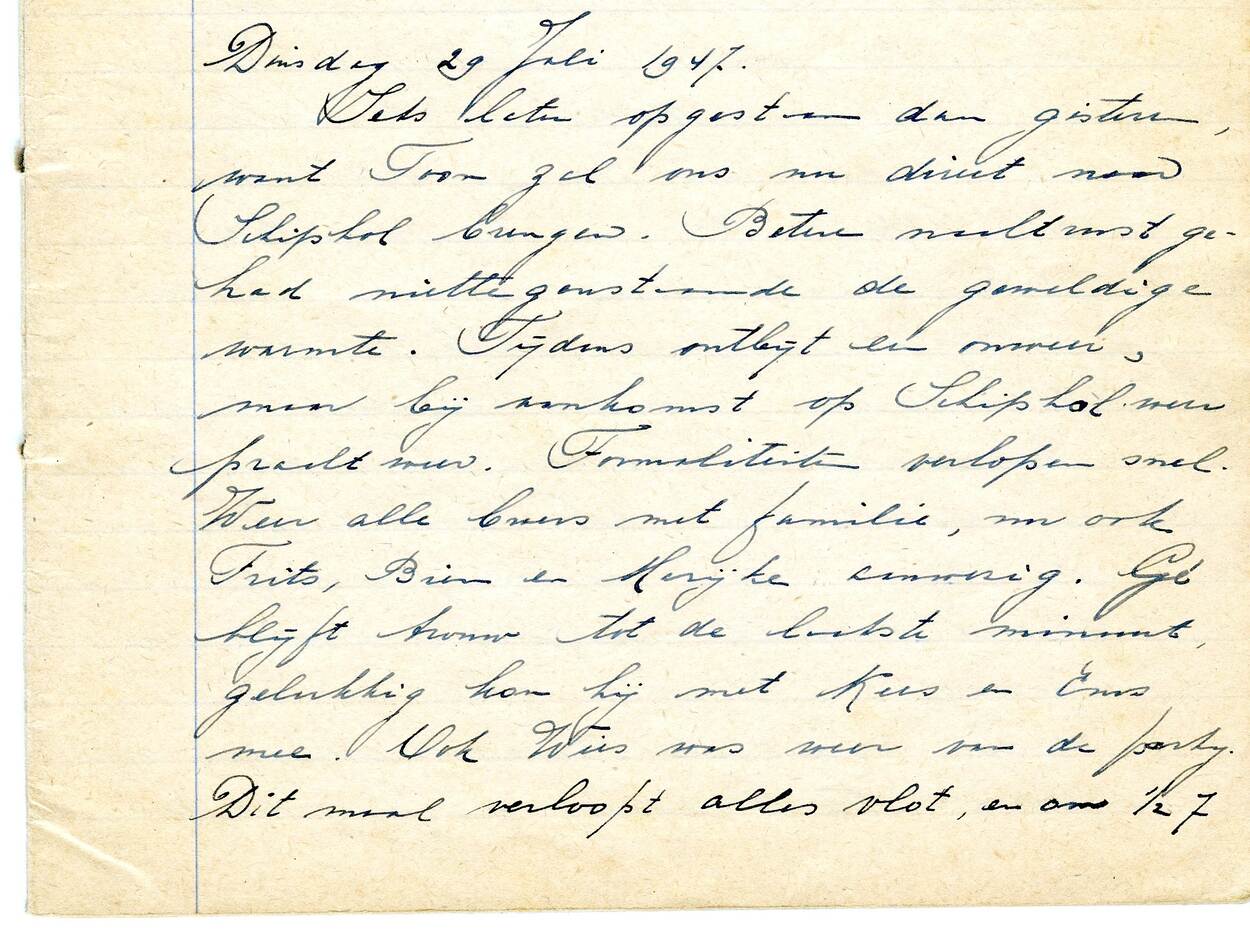 Dinsdag 29 Juli 1947.
Iets later opgestaan dan gisteren,
want Toon zal ons nu direct naar
Schiphol brengen. Betere nachtrust ge-
had niettegenstaande de geweldige
warmte. Tijdens ontbijt een onweer,
maar bij aankomst op Schiphol weer
pracht weer. Formaliteiten verlopen snel.
Weer alle buurs met familie, nu ook
Frits, Bien en Marijke aanwezig. Gé
blijft trouw tot de laatste minuut,
gelukkig kan hij met Kees en Ems
mee. Ook Wies was weer van de party.
Dit maal verloopt alles vlot, en om ½ 7